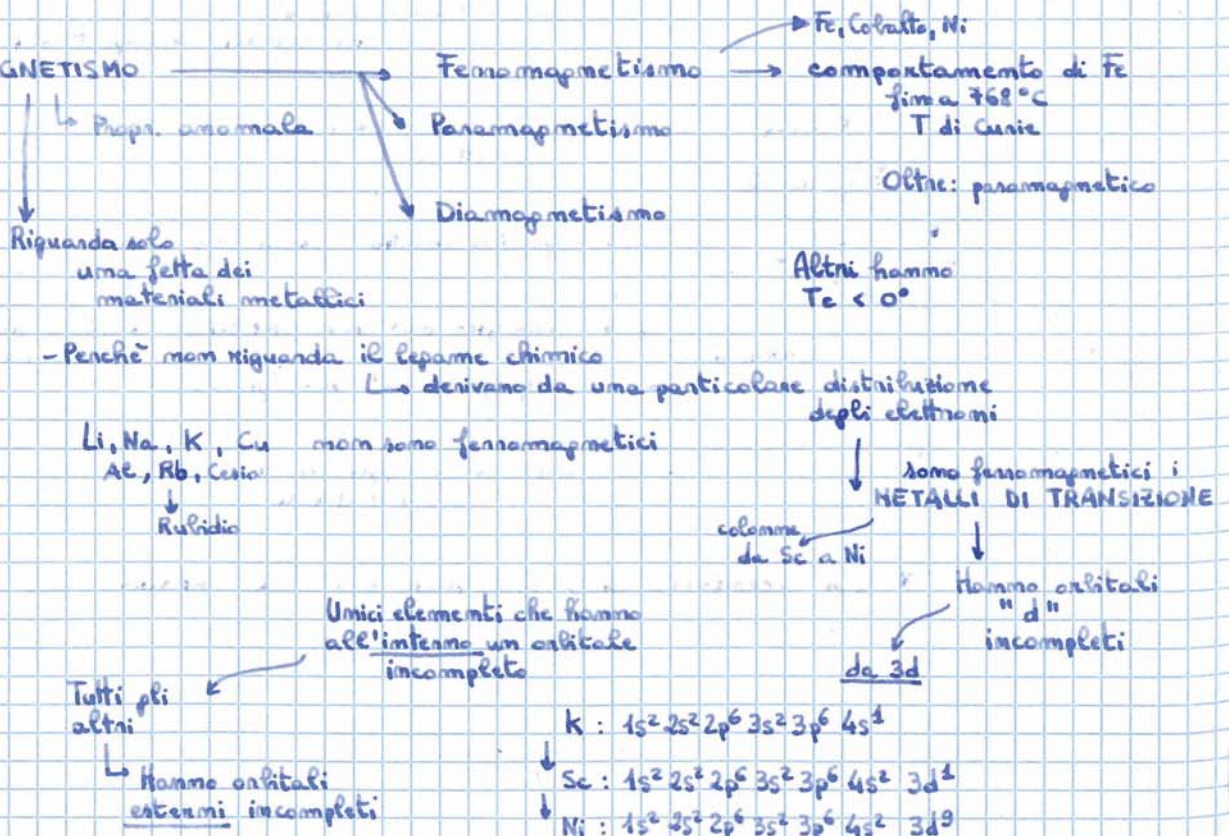 GNETISMO
Propr. anomala
Riguarda solo
una fetta dei
materiali metallici
Ferromagnetismo
Paramagnetismo
Diamagnetismo
Fe, Cobalto, Ni
comportamento di Fe
fino a 768°C
T di Curie
Oltre: paramagnetico
Altri hanno
Tc < 0°
- Perchè non riguarda il legame chimico
derivano da una particolare distribuzione
degli elettroni
Li, Na, K, Cu non sono ferromagnetici
Al, Rb, Cesio
Rubidio
sono ferromagnetici i
METALLI DI TRANSIZIONE
colonne
da Sc a Ni
Hanno orbitali
"d"
incompleti
da 3d
Unici elementi che hanno
all'interno un orbitale
incompleto
Tutti gli
altri
Hanno orbitali
esterni incompleti
K : 1s² 2s² 2p⁶ 3s² 3p⁶ 4s¹
Sc : 1s² 2s² 2p⁶ 3s² 3p⁶ 4s² 3d¹
Ni : 1s² 2s² 2p⁶ 3s² 3p⁶ 4s² 3d⁹